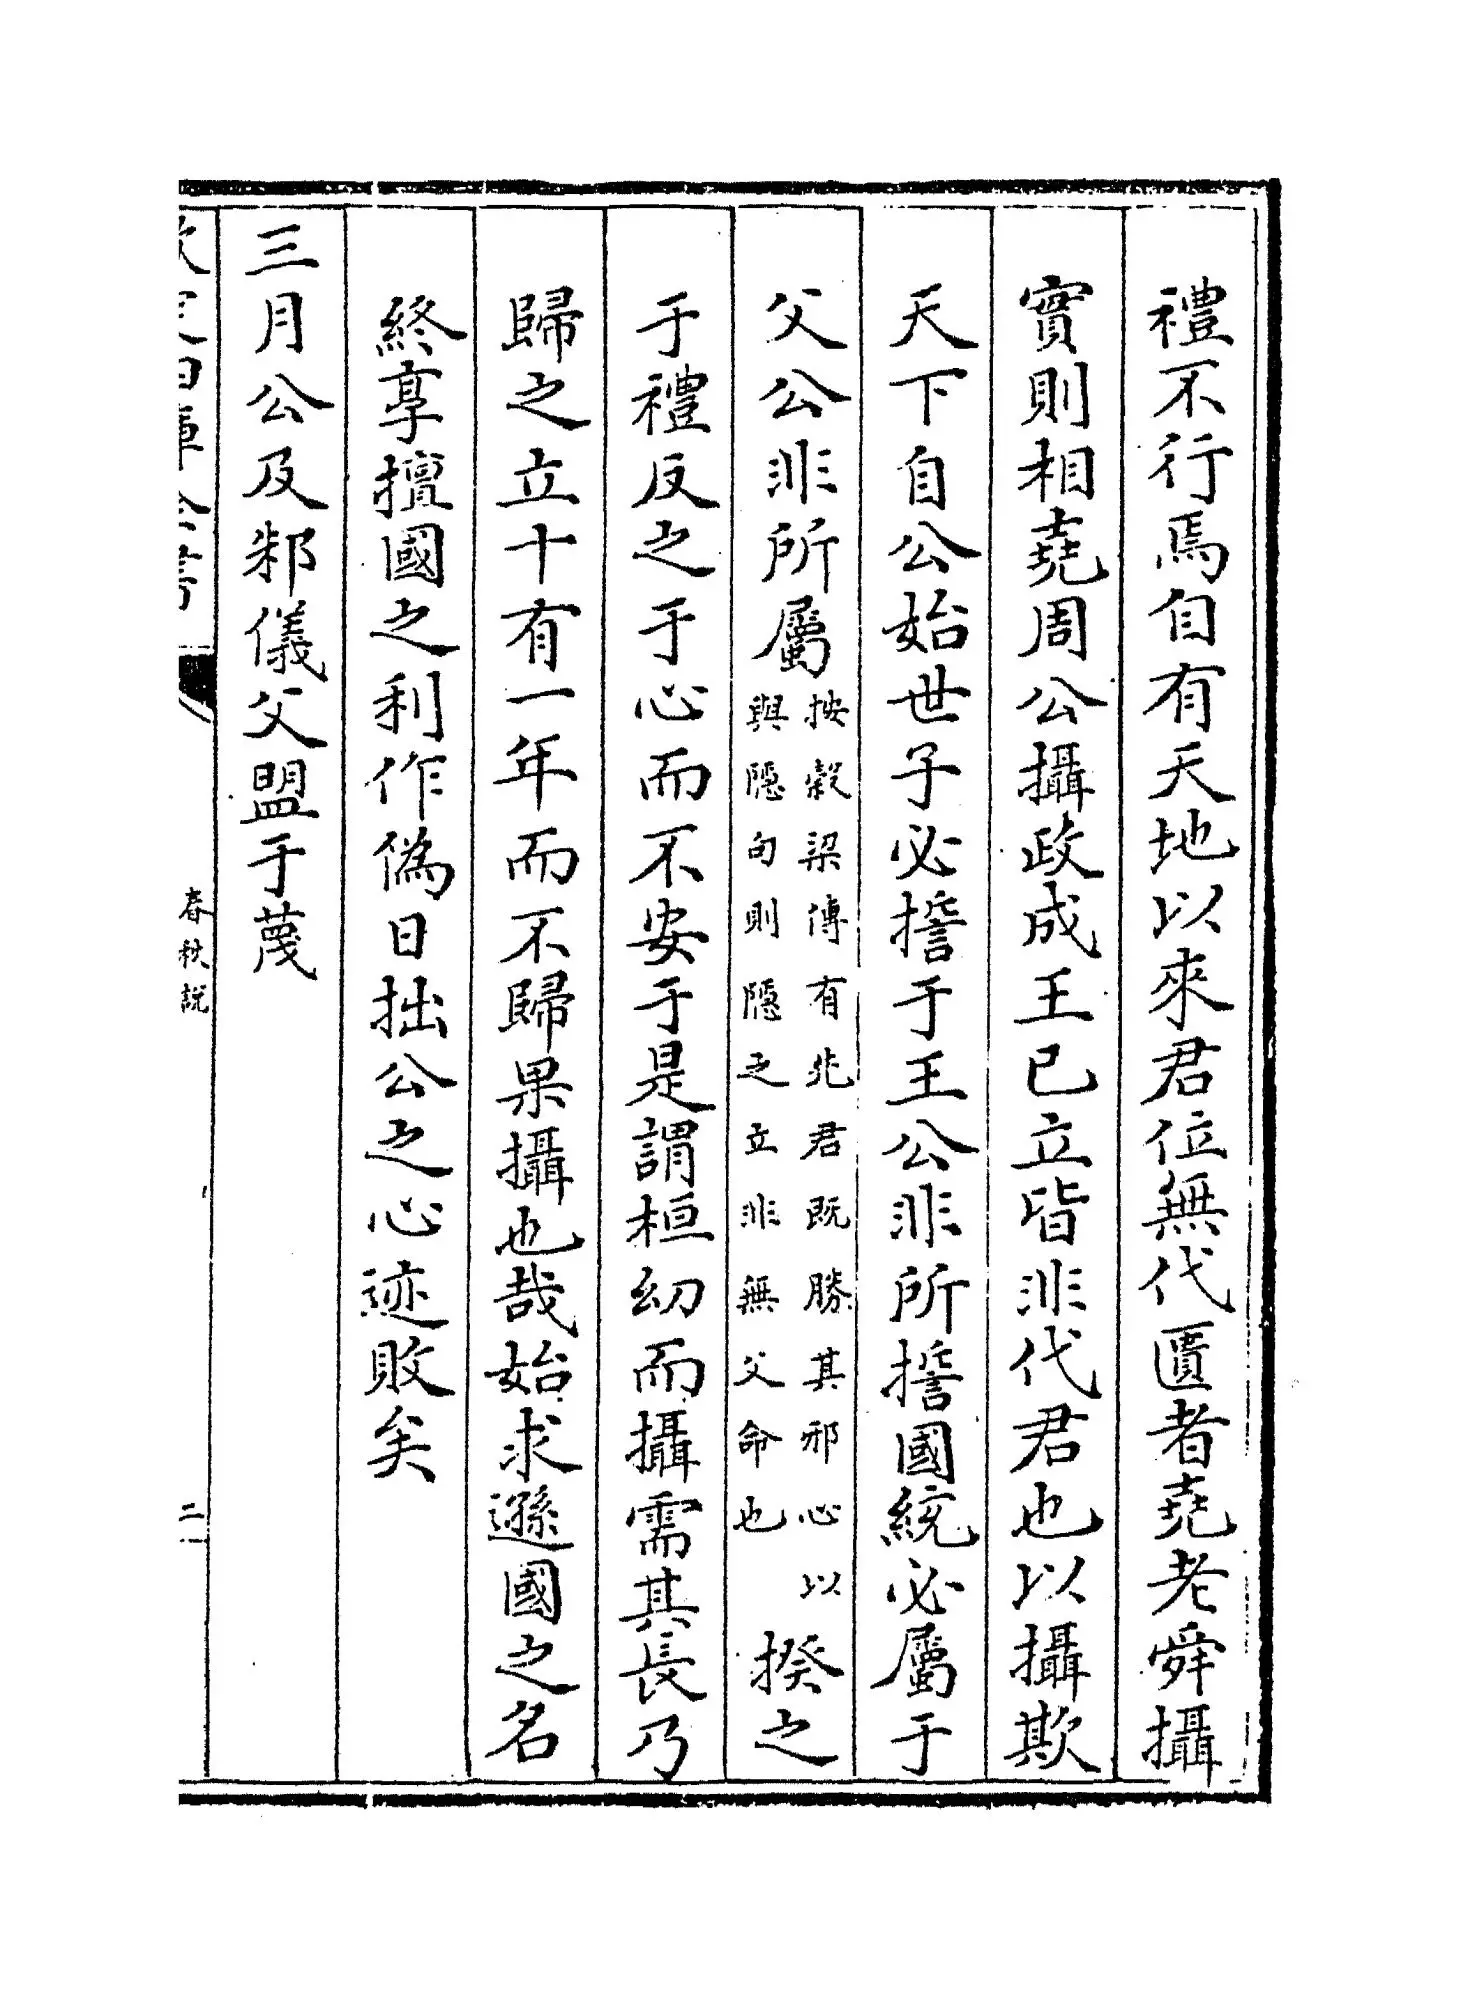 禮不行焉自有天地以來君位無代匱者堯老舜攝
實則相堯周公攝政成王已立皆非代君也以攝欺
天下自公始世子必誓于王公非所誓國統必屬于
父公非所屬按穀梁傳有兆君既勝其邪心以與隱句則隱之立非無父命也揆之
于禮反之于心而不安于是謂桓幼而攝需其長乃
歸之立十有一年而不歸果攝也哉始求遜國之名
終享擅國之利作偽日拙公之心迹敗矣
三月公及邾儀父盟于蔑
欽定四庫全書
春秋說
二